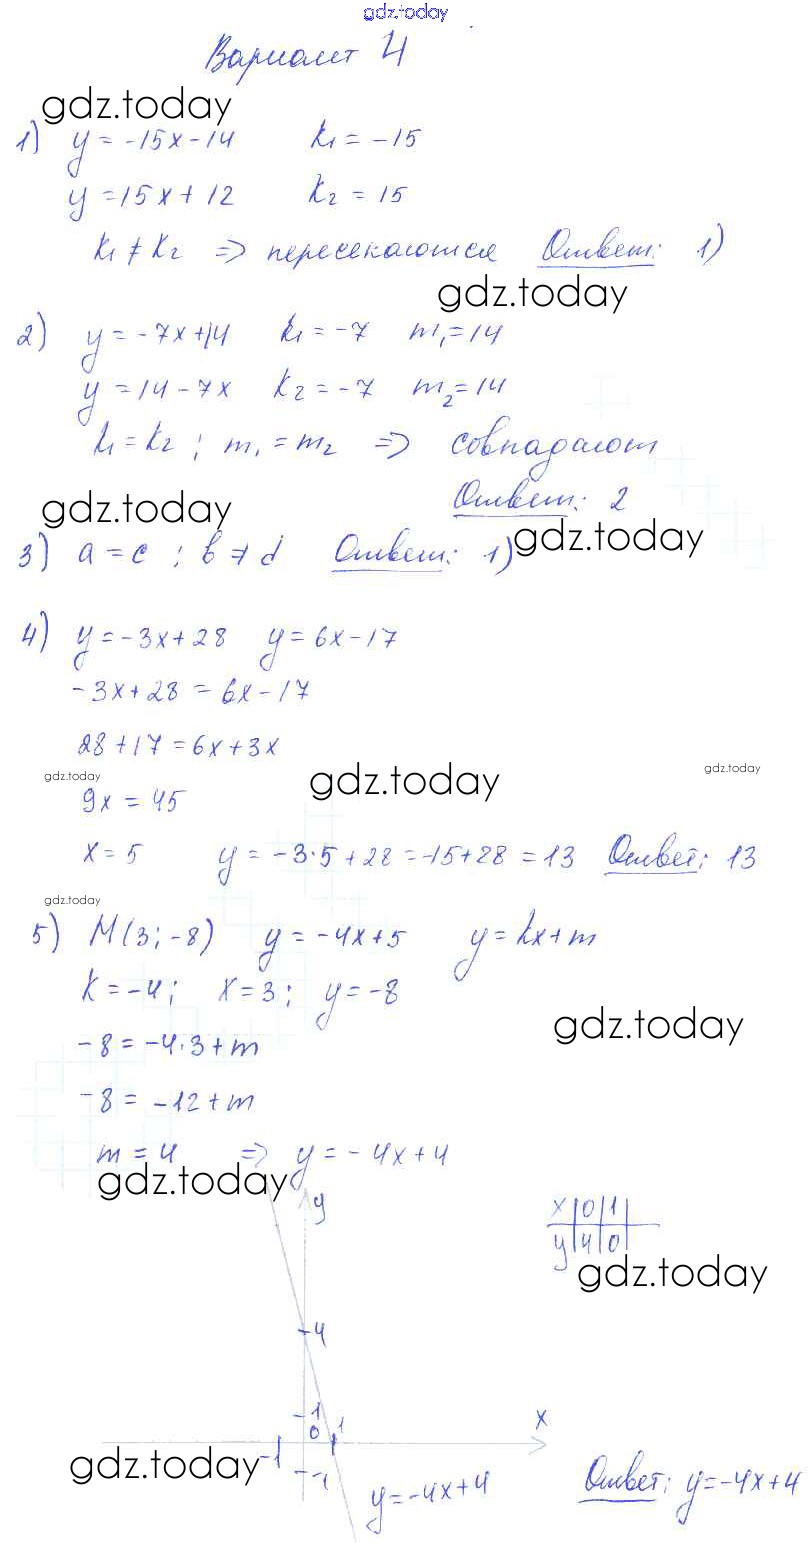 gdz.today
Вариант 4
gdz.today
1) y = -15x - 14 k₁ = -15
y = 15x + 12 k₂ = 15
k₁ ≠ k₂ => пересекаются Ответ: 1)
gdz.today
2) y = -7x + 14 k₁ = -7 m₁ = 14
y = 14 - 7x k₂ = -7 m₂ = 14
k₁ = k₂ ; m₁ = m₂ => совпадают
Ответ: 2
gdz.today
3) a = c ; b ≠ d Ответ: 1)
gdz.today
4) y = -3x + 28 y = 6x - 17
-3x + 28 = 6x - 17
28 + 17 = 6x + 3x
gdz.today gdz.today gdz.today
9x = 45
x = 5 y = -3·5 + 28 = -15 + 28 = 13 Ответ: 13
gdz.today
5) M(3; -8) y = -4x + 5 y = kx + m
k = -4; x = 3; y = -8
gdz.today
-8 = -4·3 + m
-8 = -12 + m
m = 4 => y = -4x + 4
gdz.today
y
x | 0 | 1 |
y | 4 | 0 |
gdz.today
4
1
0 1 x
-1
gdz.today
-1
y = -4x + 4
Ответ: y = -4x + 4